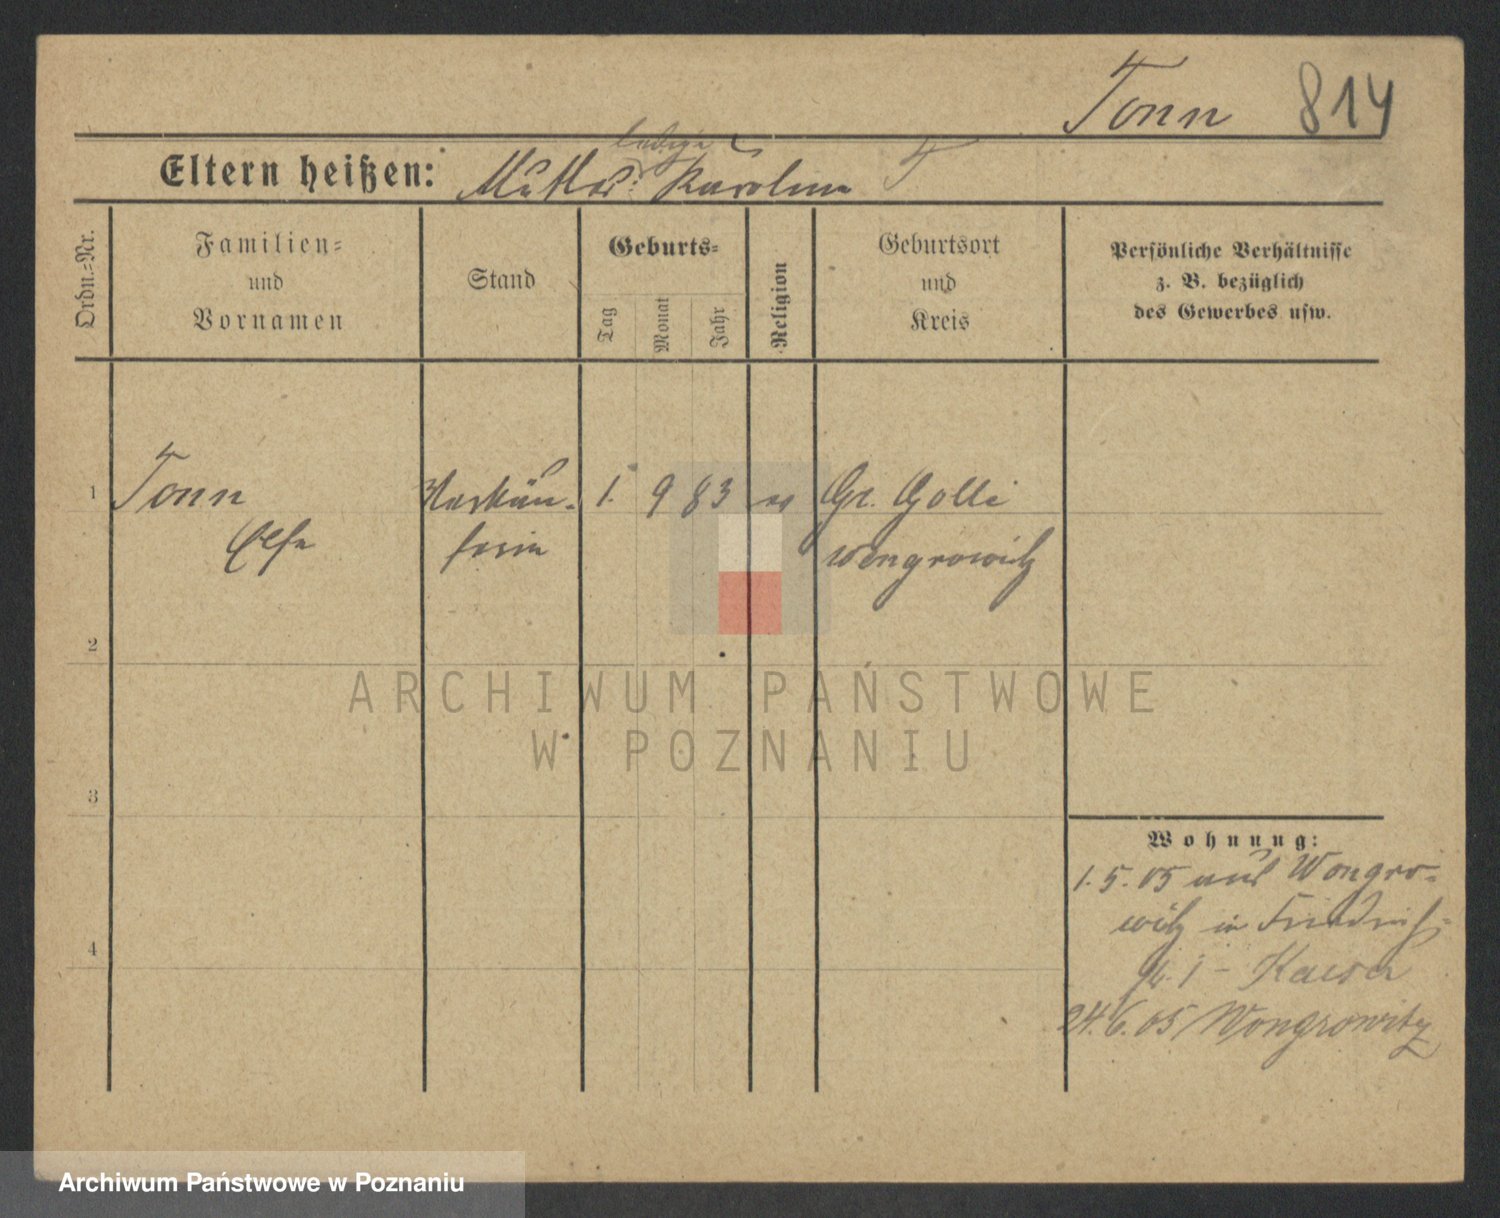 Tonn 814
ledige
Eltern heißen: Mutter: Karoline T
Ordn.=Nr.
Familien=
und
Vornamen
Stand
Geburts=
Tag
Monat
Jahr
Religion
Geburtsort
und
Kreis
Persönliche Verhältnisse
z. B. bezüglich
des Gewerbes usw.
1 Tonn Verkäu- 1. 9 83 ev Gr. Golle
Else ferin Wongrowitz
2
3
4
Wohnung:
1.5.05 aus Wongro-
witz in Friedrich-
1 - Kaiser
24.6.05 Wongrowitz
ARCHIWUM PAŃSTWOWE
W POZNANIU
Archiwum Państwowe w Poznaniu